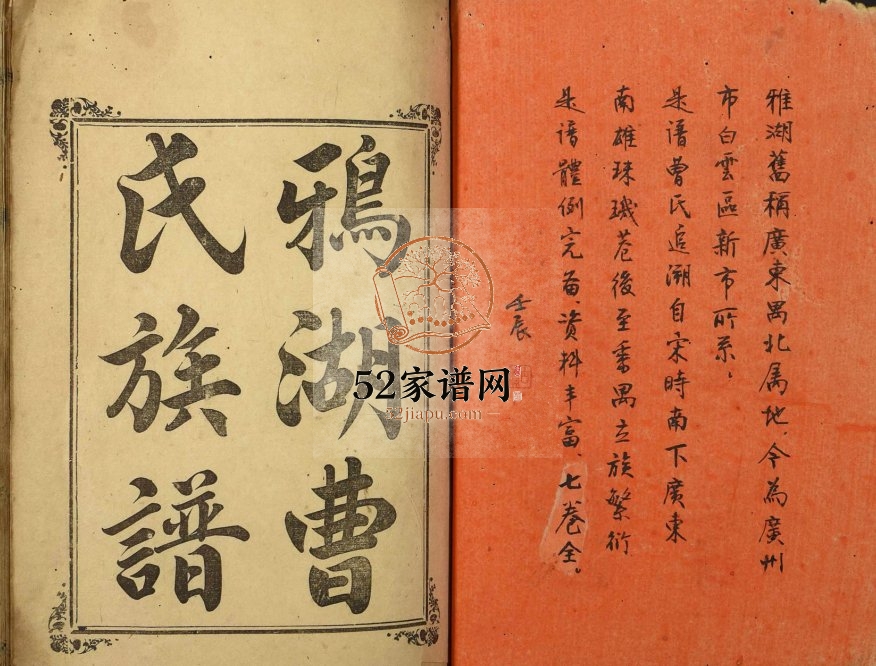 雅湖舊稱廣東禺北属地、今為廣州
市白雲區新市所系。
是譜曹氏追溯自宋時南下廣東
南雄珠璣巷後至番禺立族繁衍
是譜體例完备、資料丰富、七卷全。
壬辰
鴉湖曹
氏族譜
52家谱网
52jiapu.com